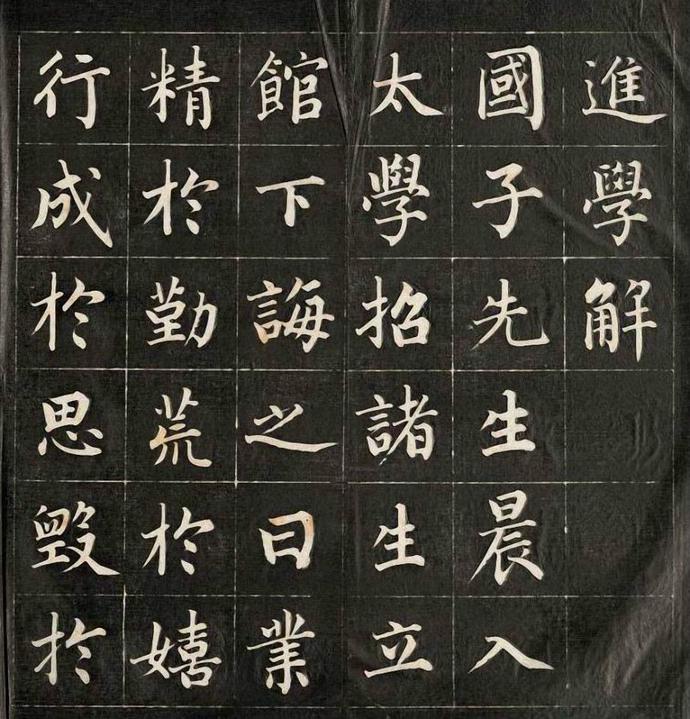 進學解
國子先生晨入
太學招諸生立
館下誨之曰業
精於勤荒於嬉
行成於思毀於